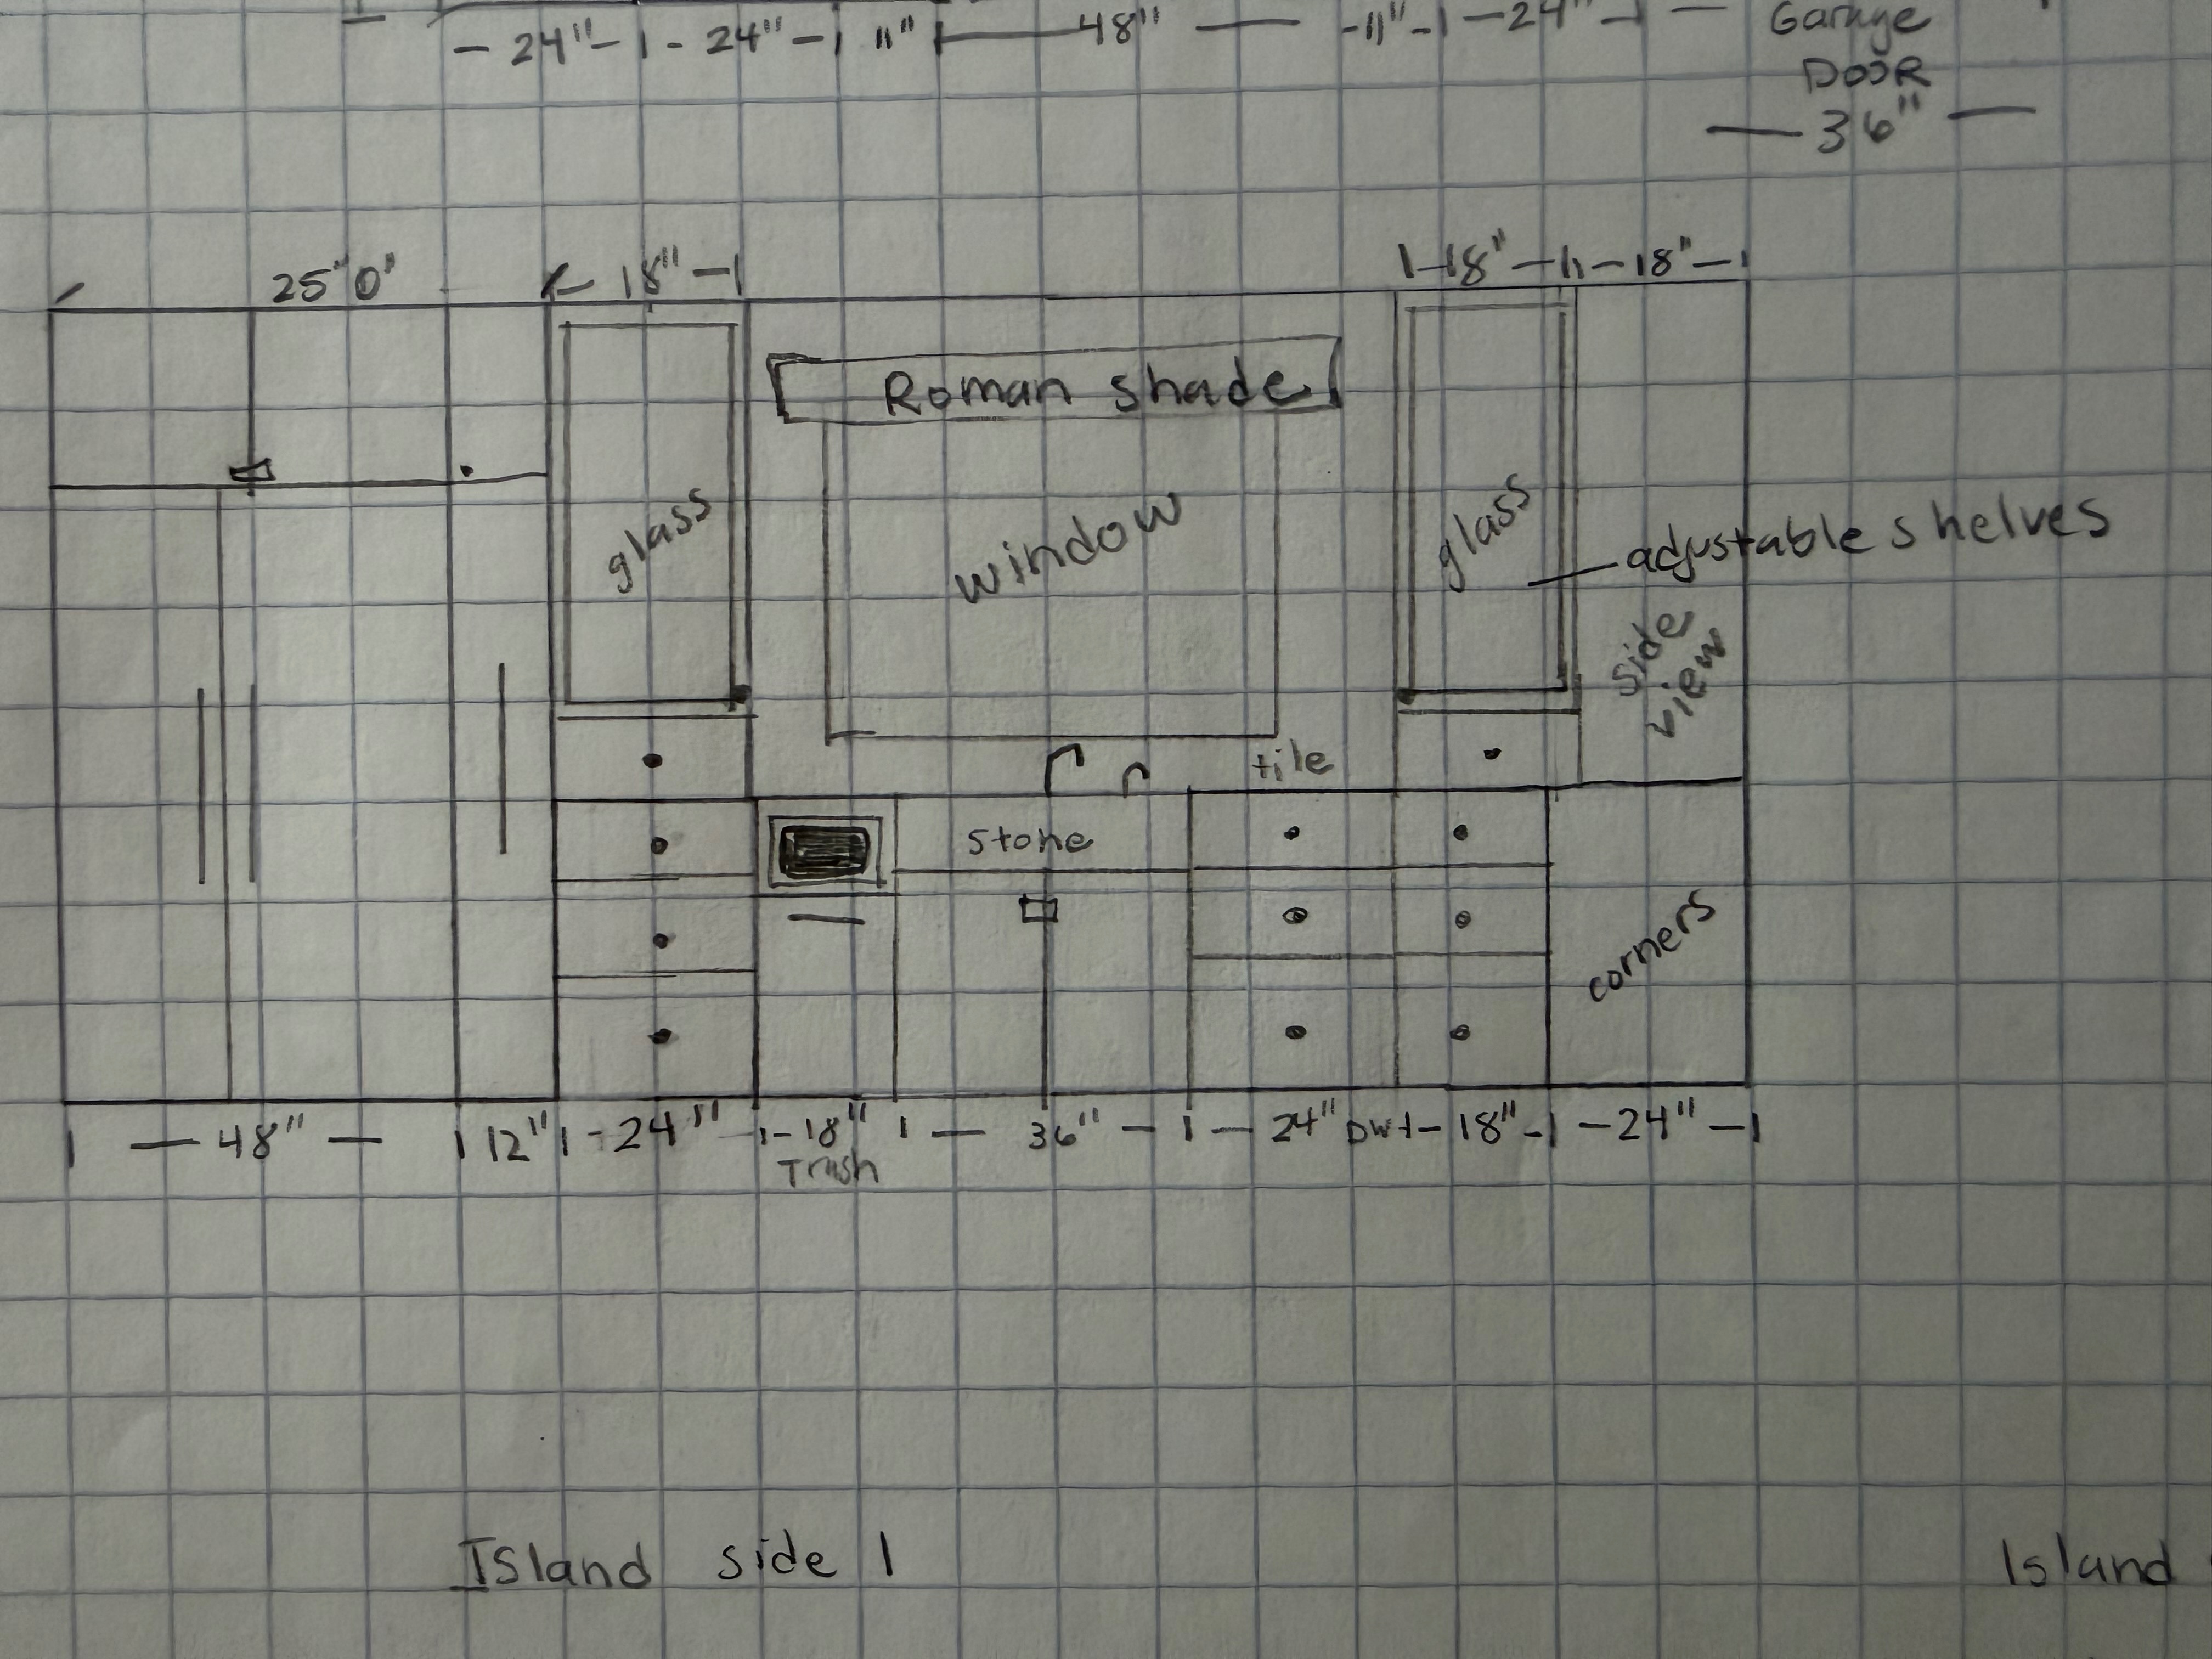 - 24" - 1 - 24" - 1 11" 1 — 48" — - 11" - 1 - 24" - 1 -
Garage
DOOR
— 36" —
25"0'
18" - 1
1 - 18" - 1 1 - 18" - 1
Roman shade
glass
window
glass
adjustable shelves
side
view
tile
stone
corners
1 — 48" — 1 12" 1 - 24" - 1 - 18" 1 — 36" - 1 — 24" DW 1 - 18" - 1 - 24" - 1
Trash
Island side 1
Island